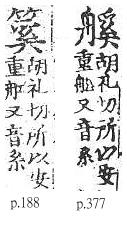 胡礼切所以安
重船又音系
胡礼切所以安
重船又音系
p.188 p.377